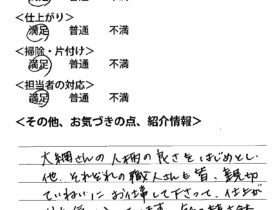 <仕上がり>
満足 普通 不満
<掃除・片付け>
満足 普通 不満
<担当者の対応>
満足 普通 不満
<その他、お気づきの点、紹介情報>
大綱さんの人柄の良さをはじめとし
他、それぞれの職人さんも皆、親切
ていねいにお仕事して下さって、仕上が